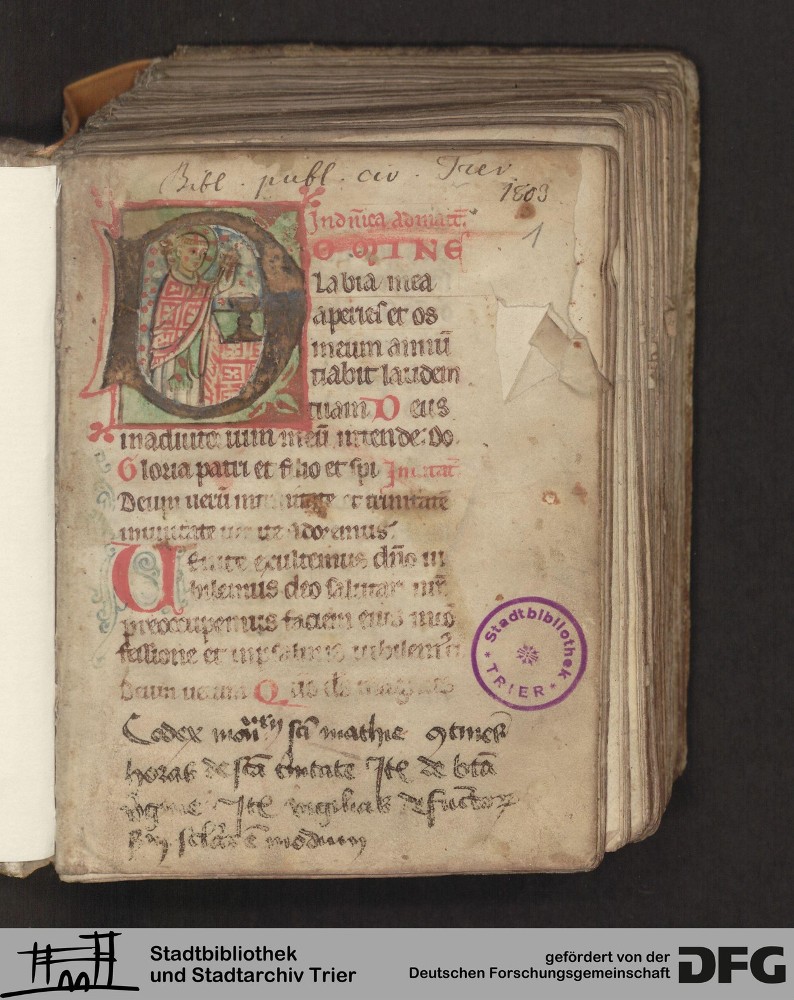 Bibl. publ. civ. Trev.
1803
1
Ind nīca ad matī.
OMINE
labia mea
aperies et os
meum annū
tiabit laudem
tuam Deus
in adiuto rium meū intende. Do
Gloria patri et filio et spi Inuitat
Deum uerū in unitate et trinitate
in unitate uenite adoremus
Uenite exultemus dn̄o iu
bilemus deo salutari
preoccupemus faciem eius
fessione et in psalmis iubilem
Deum uerum Q
Codex scī mathie
horas de scā tnitate Itē de btā
Itē vigilias defunctoꝝ
modum
Stadtbibliothek
TRIER
Stadtbibliothek
und Stadtarchiv Trier
gefördert von der
Deutschen Forschungsgemeinschaft
DFG